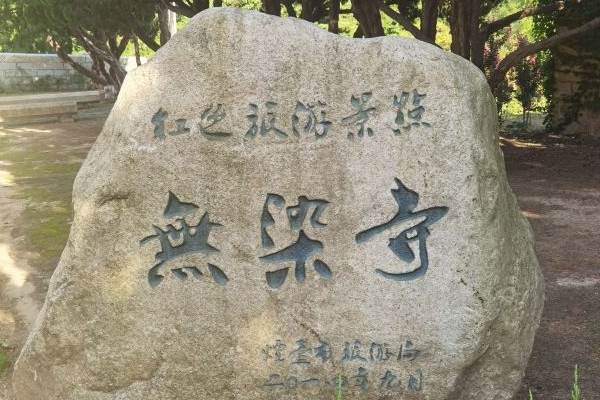 红色旅游景點
無染寺
煙臺市旅游局
二〇一 年九月